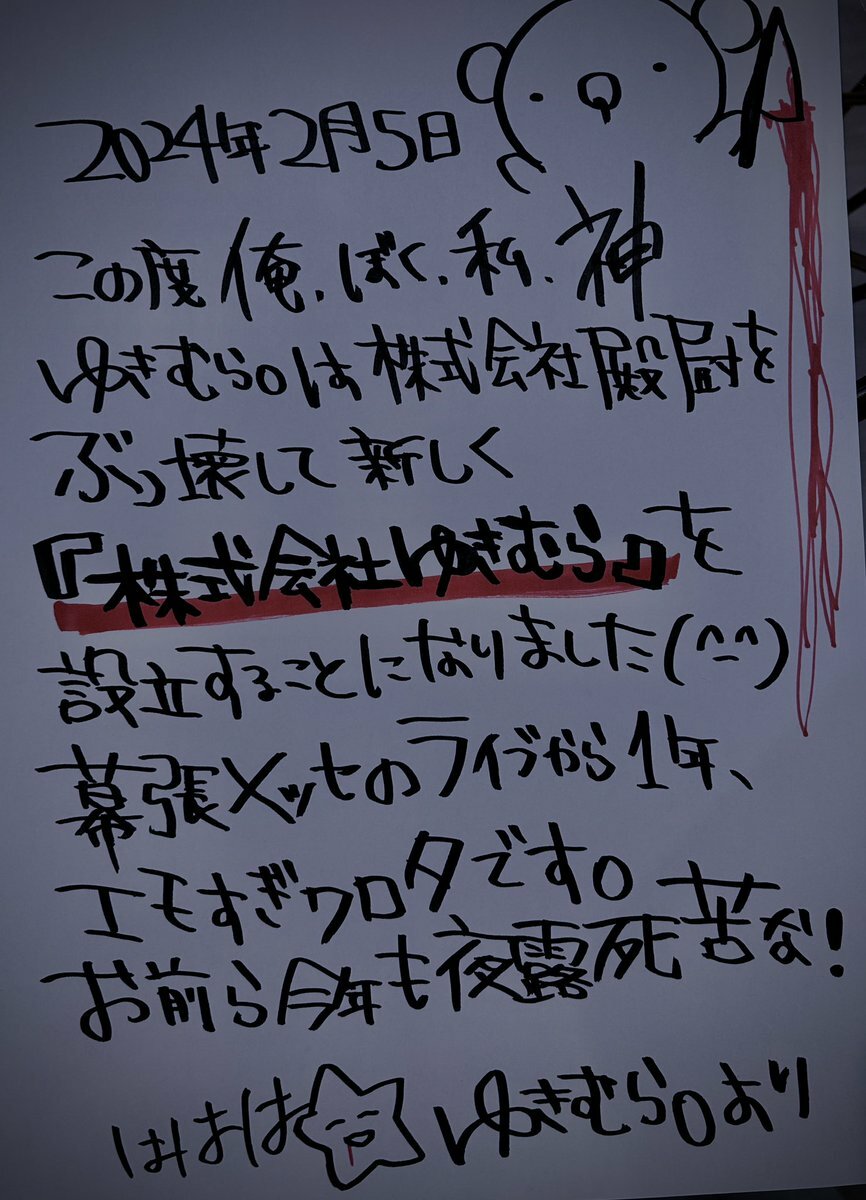 2024年2月5日
この度俺、ぼく、私、神
ゆきむら。は株式会社殿尉を
ぶっ壊して新しく
『株式会社ゆきむら』を
設立することになりました(^-^)
幕張メッセのライブから1年、
エモすぎワロタです。
お前ら今年も夜露死苦な!
はははゆきむら。より